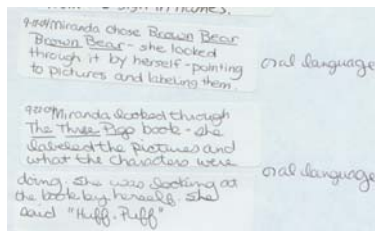 sign in names.
Miranda chose Brown Bear
Brown Bear - she looked
through it by herself - pointing
to pictures and labeling them.
oral language
Miranda looked through
The Three Pigs book - she
labeled the pictures and
what the characters were
doing. She was looking at
the book by herself. She
said "Huff. Puff"
oral language